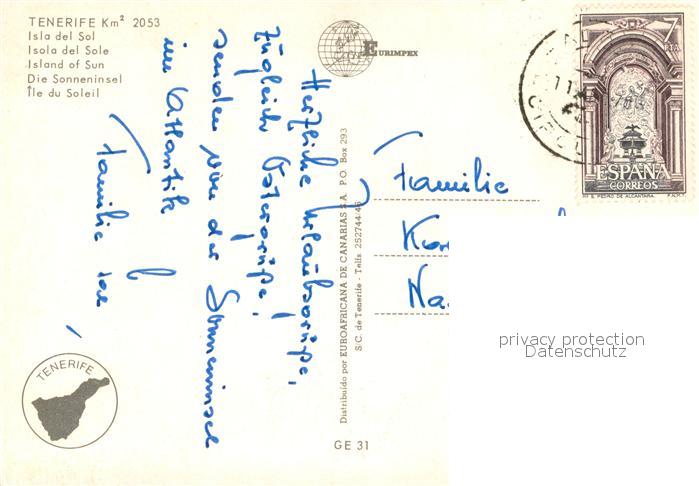 TENERIFE Km² 2053
Isla del Sol
Isola del Sole
Island of Sun
Die Sonneninsel
Île du Soleil
EURIMPEX
7 PTA
ESPAÑA
CORREOS
S. PEDRO DE ALCANTARA. F.N.M.T.
Herzliche Urlaubsgrüße,
zugleich Ostergrüße,
senden von der Sonneninsel
im Atlantik
Familie
Distribuido por EUROAFRICANA DE CANARIAS S.A. P.O. Box 293
S/C. de Tenerife - Telfs. 252744-45
Familie
privacy protection
Datenschutz
TENERIFE
GE 31